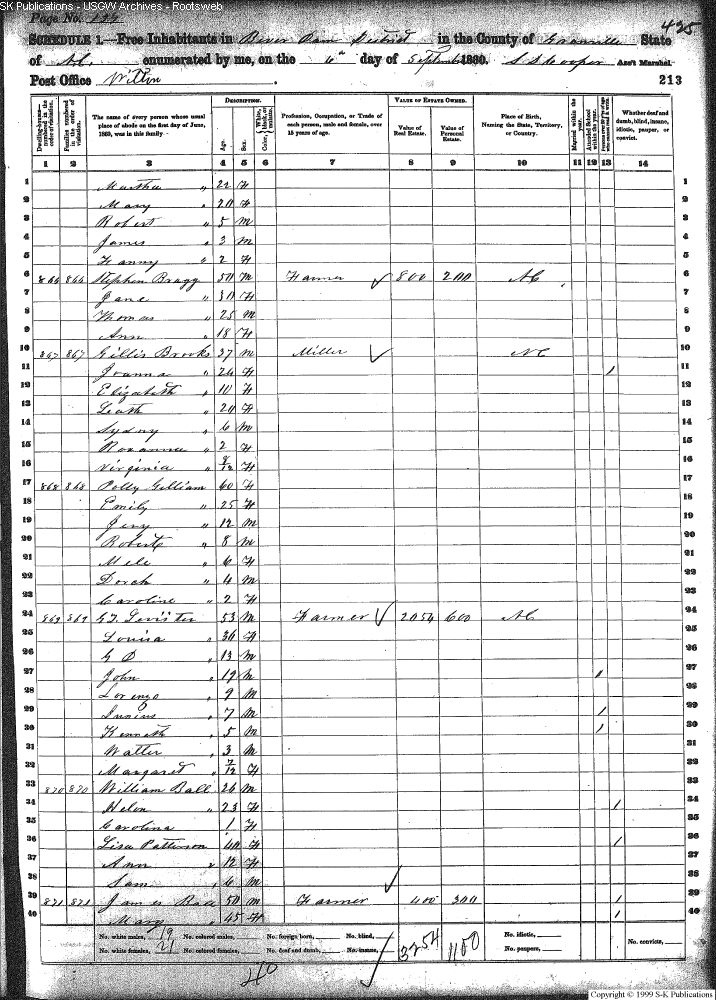 SK Publications - USGW Archives - Rootsweb
Page No. 127
425
SCHEDULE 1.—Free Inhabitants in Bever Dam District in the County of Granville State
of NC enumerated by me, on the 4th day of September 1860. Ass't Marshal.
Post Office Wilton.
213
Dwelling-houses—numbered in the order of visitation.
Families numbered in the order of visitation.
The name of every person whose usual place of abode on the first day of June, 1860, was in this family.
DESCRIPTION.
Age.
Sex.
Color, White, black, or mulatto.
Profession, Occupation, or Trade of each person, male and female, over 15 years of age.
VALUE OF ESTATE OWNED.
Value of Real Estate.
Value of Personal Estate.
Place of Birth, Naming the State, Territory, or Country.
Married within the year.
Attended School within the year.
Whether deaf and dumb, blind, insane, idiotic, pauper, or convict.
1 2 3 4 5 6 7 8 9 10 11 12 13 14
1 Martha " 22 F 1
2 Mary " 20 F 2
3 Robert " 5 M 3
4 James " 3 M 4
5 Fanny " 2 F 5
6 866 866 Stephen Bragg 50 M Farmer 800 200 NC 6
7 Jane " 30 F 7
8 Thomas " 25 M 8
9 Ann " 18 F 9
10 867 867 Gillis Brooks 37 M Miller NC 10
11 Joanna " 24 F 1 11
12 Elizabeth " 10 F 12
13 Leath " 20 F 13
14 Sydny " 6 M 14
15 Roxanna " 2 F 15
16 Virginia " 8/12 F 16
17 868 868 Polly Gilliam 60 F 17
18 Emily " 25 F 18
19 Jery " 12 M 19
20 Robert " 8 M 20
21 Mele " 6 F 21
22 Dorah " 4 M 22
23 Caroline " 2 F 23
24 869 869 G T Levister 53 M Farmer 2054 600 NC 24
25 Louisa " 36 F 25
26 G D " 13 M 26
27 John " 19 M 1 27
28 Lorenzo " 9 M 28
29 Junius " 7 M 1 29
30 Kenneth " 5 M 1 30
31 Walter " 3 M 31
32 Margaret " 7/12 F 32
33 870 870 William Ball 26 M 33
34 Helen " 23 F 1 34
35 Carolina 1 F 35
36 Lisa Patterson 40 F 1 36
37 Ann " 12 F 37
38 Sam " 6 M 38
39 871 871 James 50 M Farmer 400 300 1 39
40 Mary " 45 F 1 40
No. white males, 19 No. colored males, No. foreign born, No. blind, No. idiotic,
No. white females, 21 No. colored females, No. deaf and dumb, No. insane, 3254 1100 No. paupers, No. convicts,
40
Copyright © 1999 S-K Publications